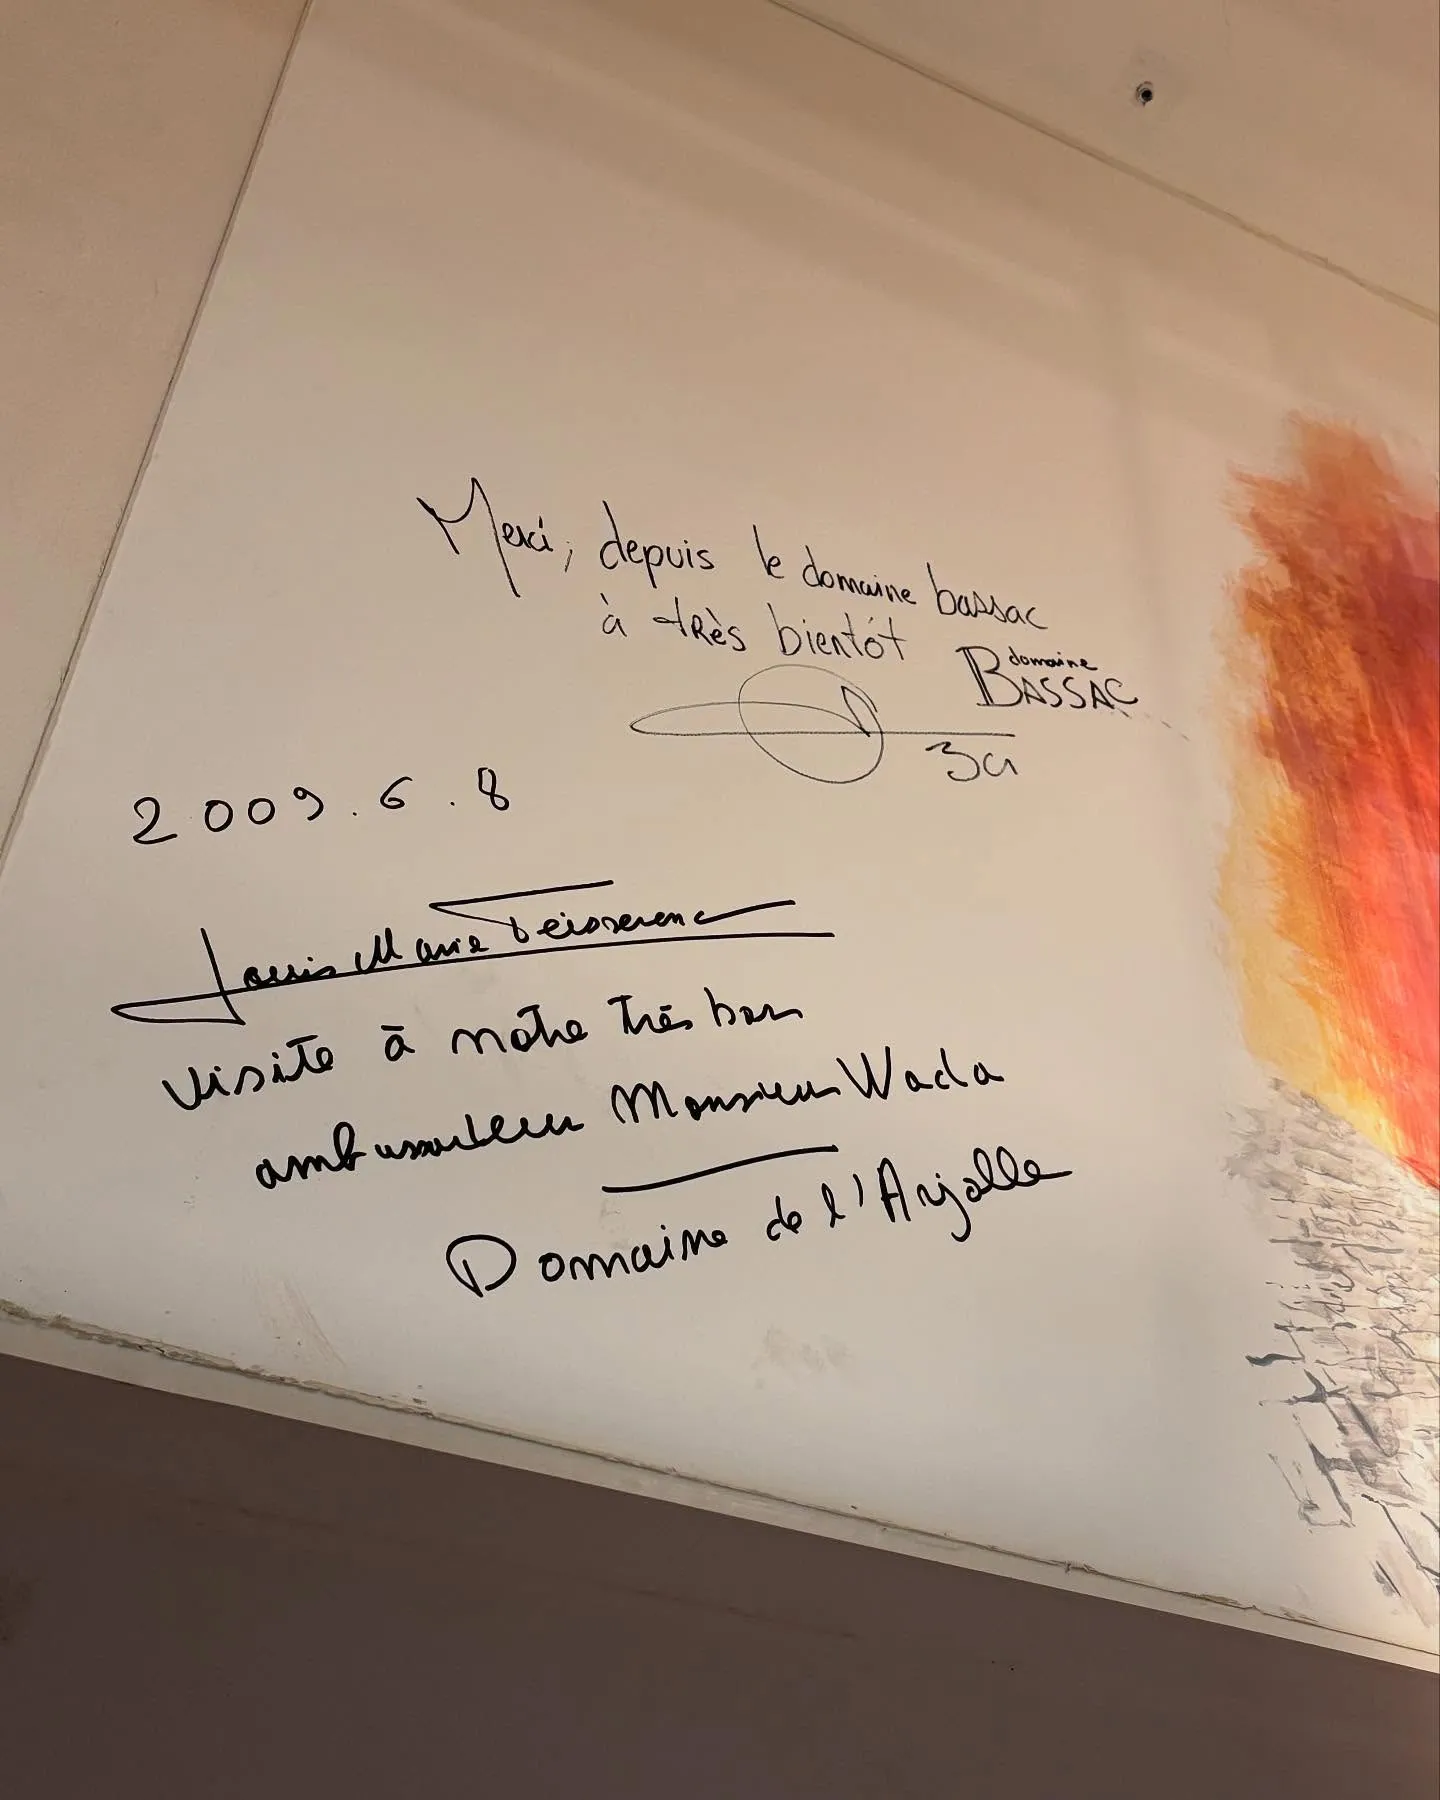 Merci, depuis le domaine bassac
à très bientôt
domaine
BASSAC
2009.6.8
Louis Marie Teisserenc
visite à notre très bon
ambassadeur Monsieur Wada
Domaine de l'Arjolle